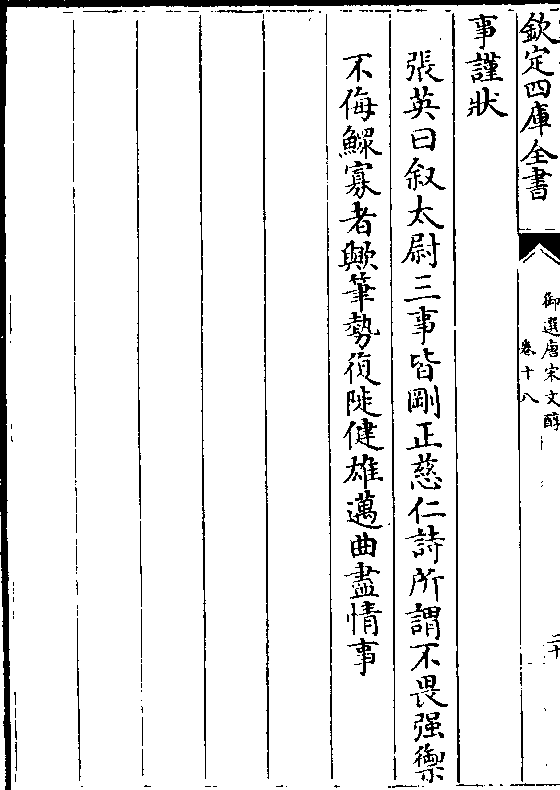 欽定四庫全書
御選唐宋文醇
卷十八
二十
事謹狀
張英曰叙太尉三事皆剛正慈仁詩所謂不畏强禦
不侮鰥寡者歟筆勢復陡健雄邁曲盡情事